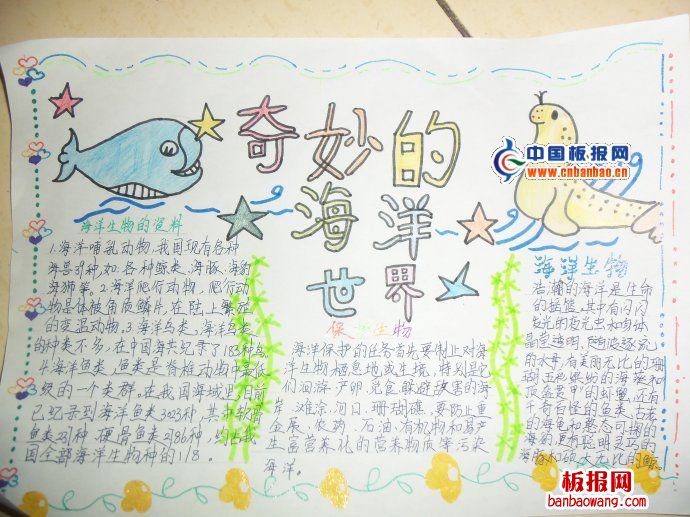 奇妙的
海洋
世界
中国板报网
www.cnbanbao.cn
海洋生物的资料
1.海洋哺乳动物,我国现有各种
海兽39种,如各种鲸类、海豚、海豹
海狮等。2.海洋爬行动物,爬行动
物是体被角质鳞片,在陆上繁殖
的变温动物。3.海洋鸟类,海洋鸟类
的种类不多,在中国海共纪录了183种鸟
4.海洋鱼类,鱼类是脊椎动物中最低
级的一个类群。在我国海域里,目前
已纪录到海洋鱼类3023种,其中软骨
鱼类237种,硬骨鱼类2786种,约占我
国全部海洋生物种的1/8。
保 生物
海洋保护的任务首先要制止对海
洋生物栖息地或生境,特别是它
们洄游、产卵、觅食、躲避敌害的海
岸、滩涂、河口、珊瑚礁,要防止重
金属、农药、石油、有机物和易产
生富营养化的营养物质等污染
海洋。
海洋生物
浩瀚的海洋是生命
的摇篮,其中有闪闪
发光的夜光虫和肉体
晶莹透明、随波逐流
的水母,有美丽无比的珊
还有
奇形怪状的鱼类,古老
的海龟和憨态可掬的
海豹,更有聪明灵巧的
海豚和硕大无比的鲸。
板报网
banbaowang.com